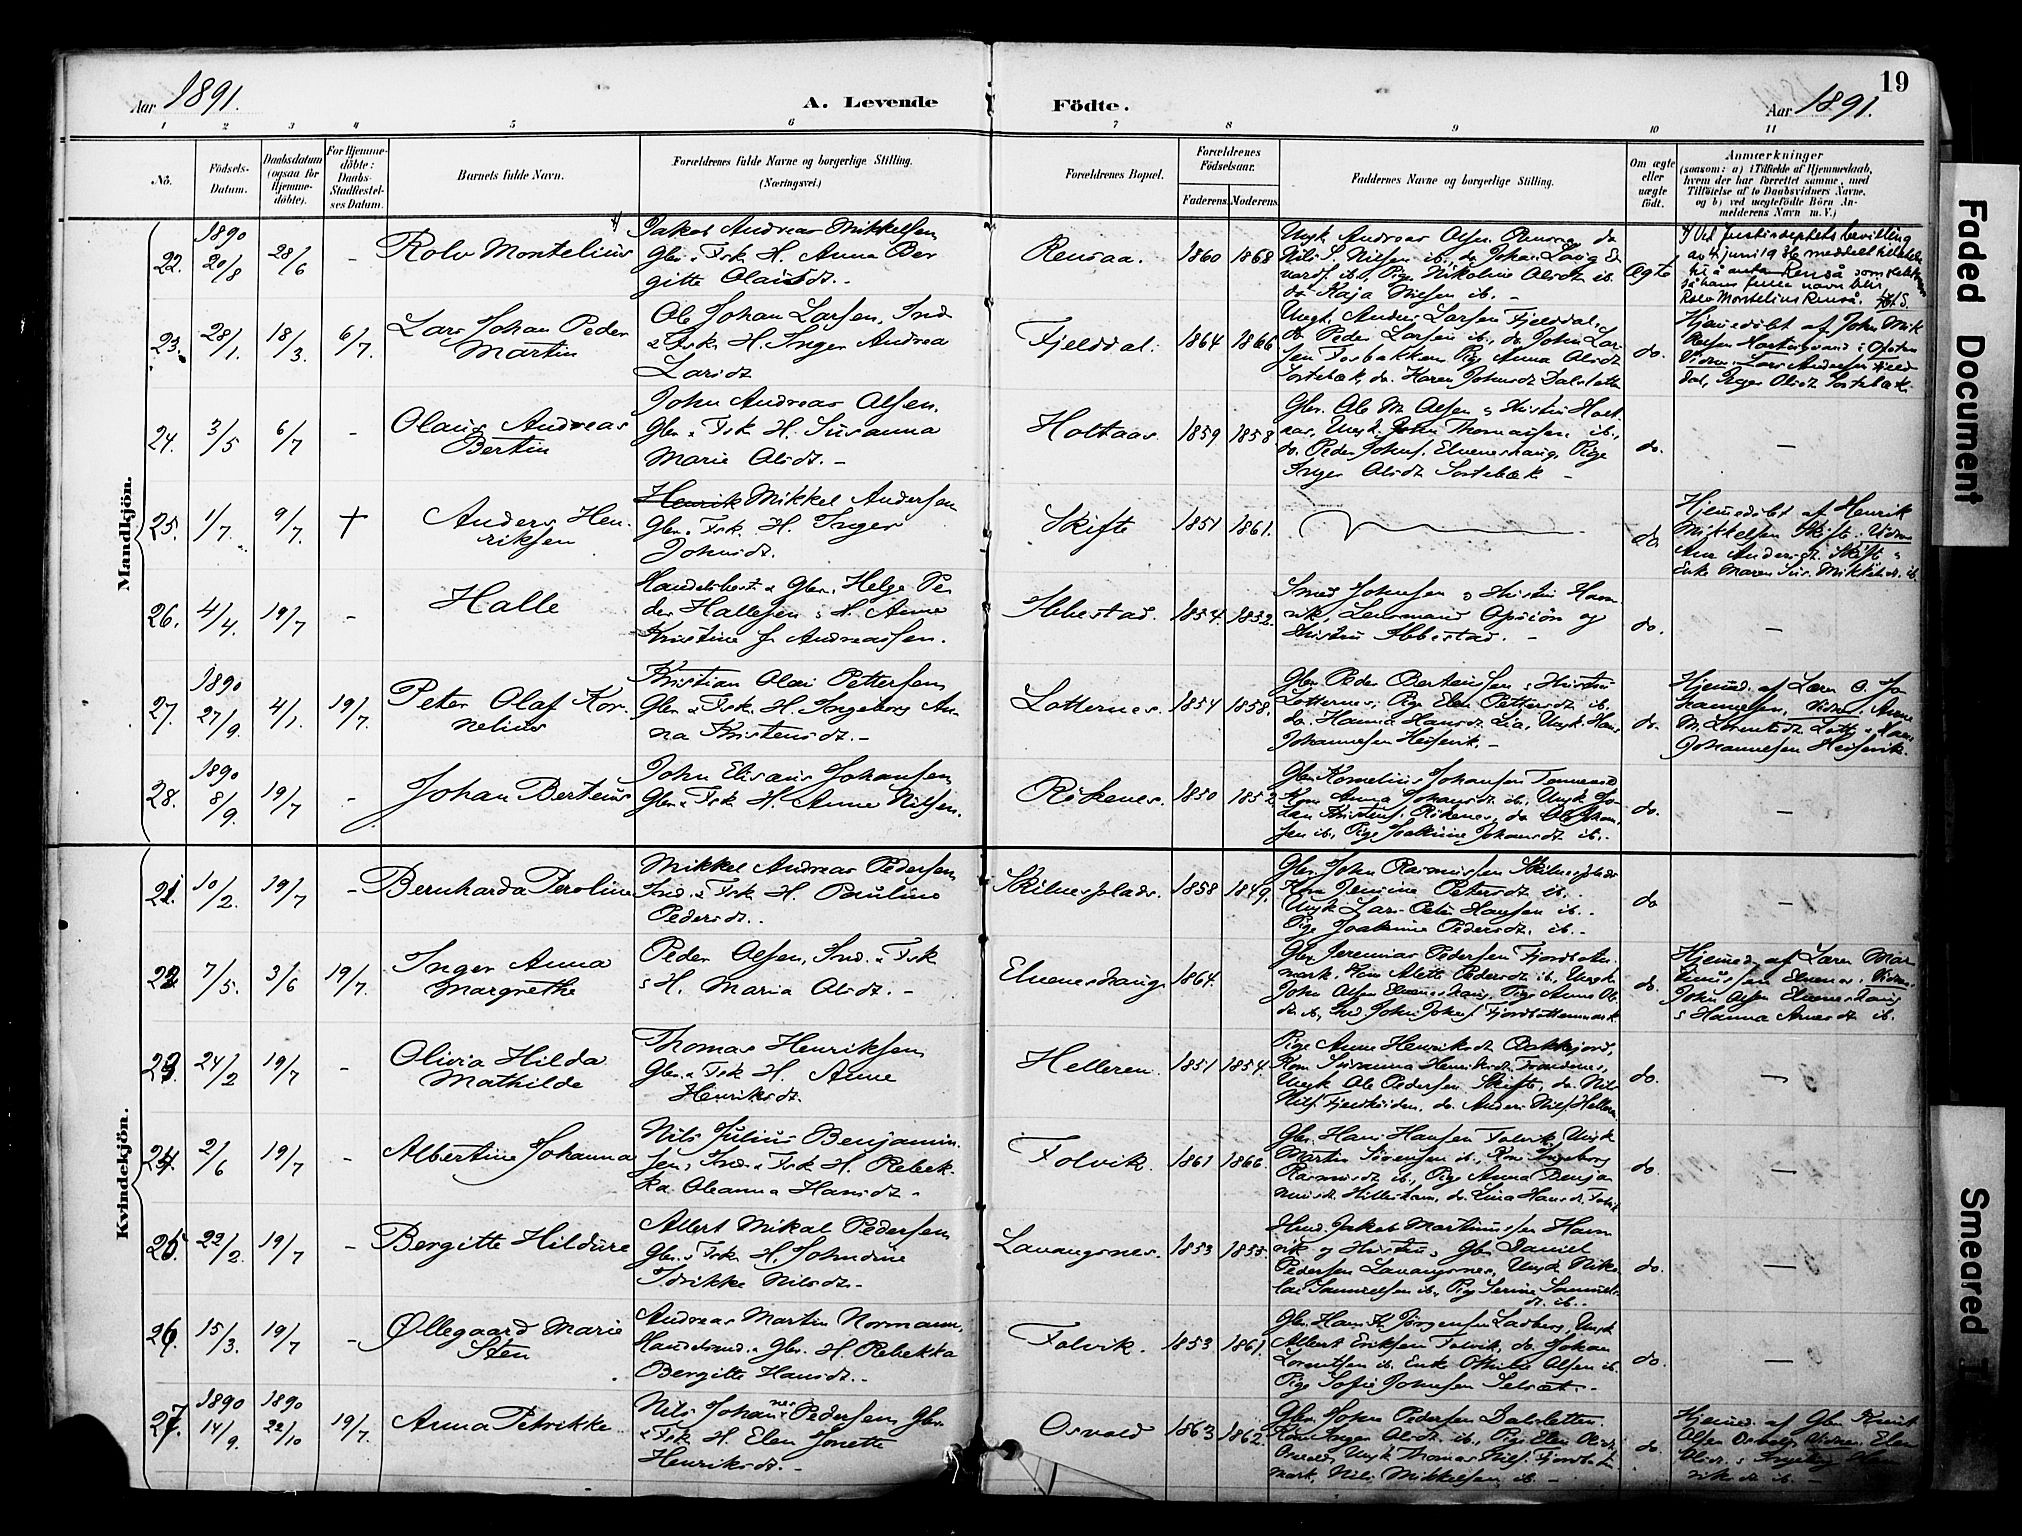 19
Aar 1891.
A. Levende Födte.
Aar 1891.
1 2 3 4 5 6 7 8 9 10 11
No.
Födsels-
Datum.
Daabsdatum
(ogsaa for
Hjemme-
döbte).
For Hjemme-
döbte:
Daabs-
Stadfæstel-
ses Datum.
Barnets fulde Navn.
Forældrenes fulde Navne og borgerlige Stilling.
(Næringsvei.)
Forældrenes Bopæl.
Forældrenes
Födselsaar.
Faderens. Moderens.
Faddernes Navne og borgerlige Stilling.
Om ægte
eller
uægte
født.
Anmærkninger
(saasom: a) i Tilfælde af Hjemmedaab,
hvem der har forrettet samme, med
Tilføielse af to Daabsvidners Navne,
og b) ved uægtefødte Börn An-
melderens Navn m. V.)
Mandkjön.
22.
1890
20/8
28/6
-
Rolv Montelius
Jakob Andreas Mikkelsen
Gbr. & Fisk. H. Anna Ber
gitte Olausdt. -
Rensaa.
1860 1868
Ungk. Andreas Olsen Rensaa, do
Nils S. Nilsen ib., do Johan Lang
Pige Nikoline Olsdt ib.
do Kaja Nilsen ib. -
Ægte
Ved Justisdeptets bevilling
av 4 juni 1936 meddelt tilladelse
til å anta Renså som slektsnavn
så hans fulle navn blir
Rolv Montelius Renså.
23.
28/1.
18/3.
6/7.
Lars Johan Peder
Martin
Ole Johan Larsen, Ind.
& Fisk. H. Inger Andrea
Larsdt
Fjelddal.
1864 1866
Ungk. Anders Larsen Fjelddal,
do. Peder Larsen ib., do. John Lar-
sen Fosbakken, Pige Anna Olsdt
Sortebæk, do. Karen Johnsdt Dalsletten
do.
Hjemmedöbt af John Mik
kelsen
Vidner: Lars Andersen Fjeld
dal, Inger Olsdt Sortebæk.
24.
3/5
6/7
-
Olaus Andreas
Bertin
John Andreas Olsen.
Gbr. & Fisk. H. Susanna
Marie Olsdt. -
Holtaas.
1859 1858
Gbr. Ole M. Olsen & Hustru Holt
aas, Ungk. John Thomassen ib.,
do. Peder Johns. Elveneshaug, Pige
Inger Olsdt Sortebæk -
do.
-
25.
1/7.
9/7.
+
Anders Hen-
riksen
Henrik Mikkel Andersen
Gbr. & Fisk. H. Inger
Johnsdt.
Skifte
1851 1861.
do
Hjemmedöbt af Henrik
Mikkelsen Skifte. Vidner
Ane Andersdt. Skifte &
Enke Maren Sus. Mikkelsdt. ib.
26.
4/4.
19/7
-
Halle
Handelsbest. & Gbr. Helge Pe
der Hallesen & H. Anna
Kristine f. Andreassen.
Ibbestad.
1854. 1852.
Smed Johnsen & Hustru Ham
vik, Lensmand og
Hustru Ibbestad. -
do.
-
27.
1890
27/9
4/1.
19/7.
Peter Olaf Kor-
nelius
Kristian Olai Pettersen
Gbr. & Fisk. H. Ingeborg An-
na Kristensdt. -
Lotternes.
1854 1858.
Gbr. Peder Bertensen & Hustru
Lotternes, Pige Elen Pettersdt ib.
do. Hanna Hansdt. Lia, Ungk. Hans
Johannesen Hesjevik. -
do.
Hjemmd. af Lærer O. Jo
hannesen, Vidner: Anne
M. Lorentsdt. Lotte &
Johannesen Hesjevik.
28.
1890
8/9.
19/7
-
Johan Berteus
John Elisæus Johansen
Gbr. & Fisk. H. Anne Nilsen.
Rökenes.
1850 1852
Gbr. Kornelius Johansen
Kone Anna Johansdt. ib., Ungk. Jo-
han Kristens. Rökenes, do. Ole Johan-
sen ib., Pige Joakime Johansdt ib. -
do.
-
Kvindekjön.
21.
10/2.
19/7
-
Bernharda Peroline
Mikkel Andreas Pedersen,
Ind. & Fisk. H. Pauline
Pedersdt. -
Skilnesplads.
1858 1849.
Gbr. John Rasmussen Skilnesplads
Kone Jensine Petersdt ib.
Ungk. Lars Peter Hansen ib. -
Pige Joakime Pedersdt. ib. -
do
-
22.
7/5.
3/6
19/7.
Inger Anna
Margrethe
Peder Olsen, Ind. & Fisk
& H. Maria Olsdt. -
Elveneshaug
1864.
Gbr. Jeremias Pedersen Fjordbotn
mark, Kone Alette Pedersdt ib., Ungk.
John Olsen Elveneshaug, Pige Anna Ols
dt ib., Ind. John Johns. Fjordbottenmark.
do.
Hjemmd. af Lærer Mar
tinussen Elvenes. Vidner:
John Olsen Elveneshaug
& Hanna Arnesdt ib.
23.
24/2
19/7
-
Olivia Hilda
Mathilde
Thomas Henriksen
Gbr. & Fisk. H. Anne
Henriksdt.
Helleren.
1851 1854.
Pige Anne Henriksdt Bakkejord,
Kone Susanna Henriksdt
Ungk. Ole Pedersen Skifte, do. Nils
Nils. do. Anders Nils. Helleren
do.
-
24.
2/6
19/7
-
Albertine Johanna
Nils Julius Benjamin-
sen, Ind. & Fisk. H. Rebek-
ka Oleanna Hansdt. -
Folvik.
1861 1866.
Gbr. Hans Hansen Folvik, Ungk
Martin Sörensen ib., Kone Ingeborg
Rasmusdt ib., Pige Anna Benja
minsdt. Hilleshamn, do. Lina Hansdt. Folvik
do
-
25.
22/2.
19/7
-
Bergitte Hildure
Albert Mikal Pedersen
Gbr. & Fisk. H. Johndine
Fdrikke Nilsdt. -
Lavangsnes.
1853 1855.
Jakob Martinussen Ham
vik og Hustru, Gbr. Daniel
Pedersen Lavangsnes, Ungk. Niko
lai Samuelsen ib., Pige Serine Samuels
dt. ib. -
do.
-
26.
15/3.
19/7
-
Øllegaard Marie
Sten
Andreas Martin Normann,
Handelsmd. & Gbr. H. Rebekka
Bergitte Hansdt. -
Folvik.
1853 1861.
Gbr. Hans A. Jörgensen Ladberg, Ungk
Albert Eriksen Folvik, do. Johan
Lorentsen ib. Enke Olsen ib.
Pige Sofie Johnsen Selset. -
do.
-
27.
1890
14/9.
1890
22/10
19/7.
Anna Petrikke
Nils Johannes Pedersen, Gbr.
& Fisk. H. Elen Jonette
Henriksdt. -
Osvold
1863 1862.
Gbr. John Pedersen Dalsletten
Kone Inger Olsdt. ib., Pige Elen Olsdt.
Osvold, Ungk. Thomas Nils. Fjordbotn
mark, Nils Mikkelsen ib. -
do.
Hjemmd. af Gbr. Knut
Olsen Osvold, Vidner: Elen
Olsdt. & Ingeborg Hen
riksdt ib. -
Faded Document
Smeared